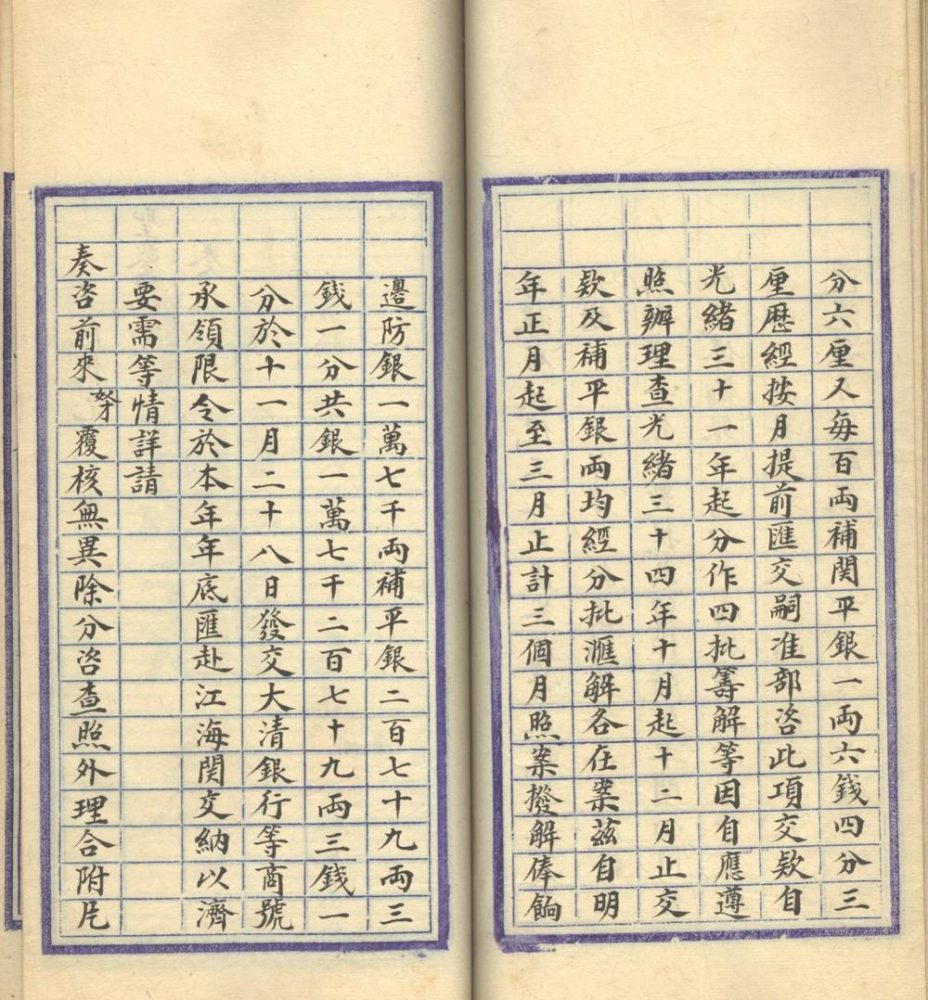 分六厘又每百両補関平銀一両六錢四分三
厘歷經按月提前匯交嗣准部咨此項交欵自
光緒三十一年起分作四批籌解等因自應遵
照辦理查光緒三十四年十月起十二月止交
欵及補平銀両均經分批滙解各在案茲自明
年正月起至三月止計三個月照案撥解俸餉
邊防銀一萬七千両補平銀二百七十九両三
錢一分共銀一萬七千二百七十九両三錢一
分於十一月二十八日發交大清銀行等商號
承領限令於本年年底匯赴江海関交納以濟
要需等情詳請
奏咨前來奴才覆核無異除分咨查照外理合附片